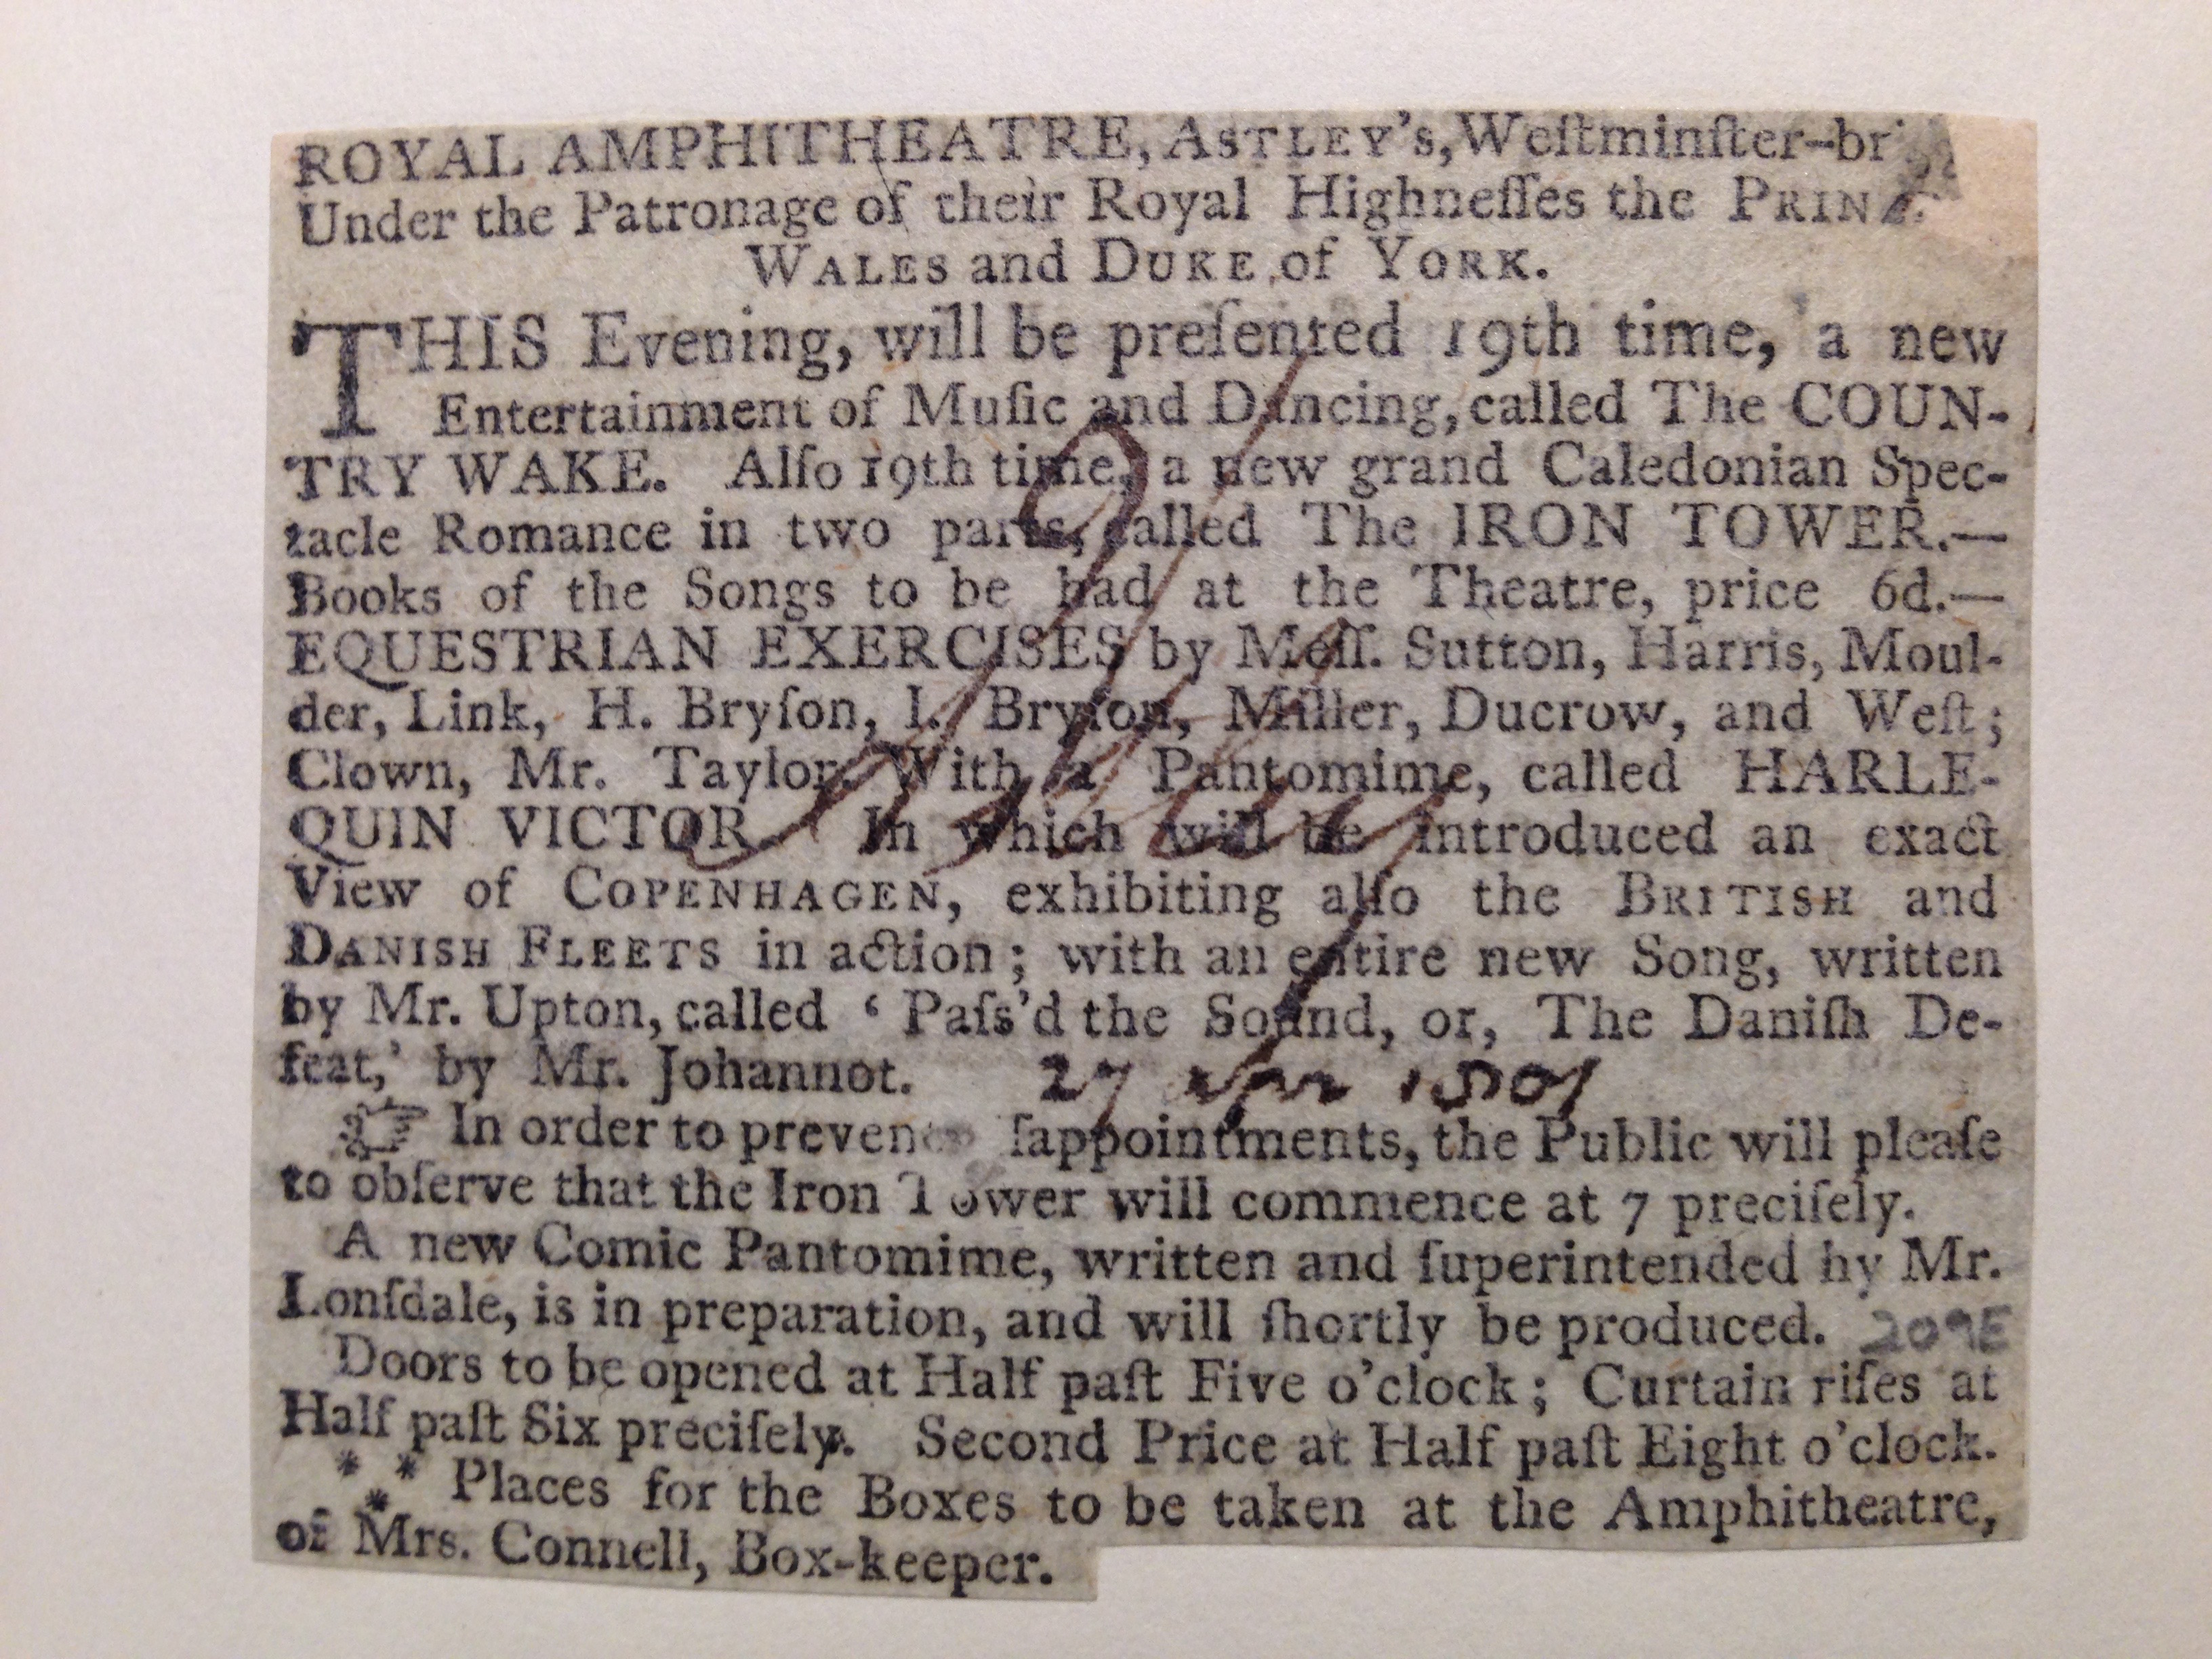 ROYAL AMPHITHEATRE, ASTLEY's, Weſtminſter-br
Under the Patronage of their Royal Highneſſes the PRIN
WALES and DUKE of YORK.
THIS Evening, will be preſented 19th time, a new
Entertainment of Muſic and Dancing, called The COUN-
TRY WAKE. Alſo 19th time, a new grand Caledonian Spec-
tacle Romance in two parts, called The IRON TOWER.—
Books of the Songs to be had at the Theatre, price 6d.—
EQUESTRIAN EXERCISES by Meſſ. Sutton, Harris, Moul-
der, Link, H. Bryſon, I. Bryſon, Miller, Ducrow, and Weſt;
Clown, Mr. Taylor. With a Pantomime, called HARLE-
QUIN VICTOR. In which will be introduced an exact
View of COPENHAGEN, exhibiting alſo the BRITISH and
DANISH FLEETS in action; with an entire new Song, written
by Mr. Upton, called ‘ Paſs'd the Sound, or, The Daniſh De-
feat,’ by Mr. Johannot. 27 Apr 1801
☞ In order to preven ſappointments, the Public will pleaſe
to obſerve that the Iron Tower will commence at 7 preciſely.
A new Comic Pantomime, written and ſuperintended by Mr.
Lonſdale, is in preparation, and will ſhortly be produced. 209E
Doors to be opened at Half paſt Five o'clock; Curtain riſes at
Half paſt Six preciſely. Second Price at Half paſt Eight o'clock.
*** Places for the Boxes to be taken at the Amphitheatre,
of Mrs. Connell, Box-keeper.